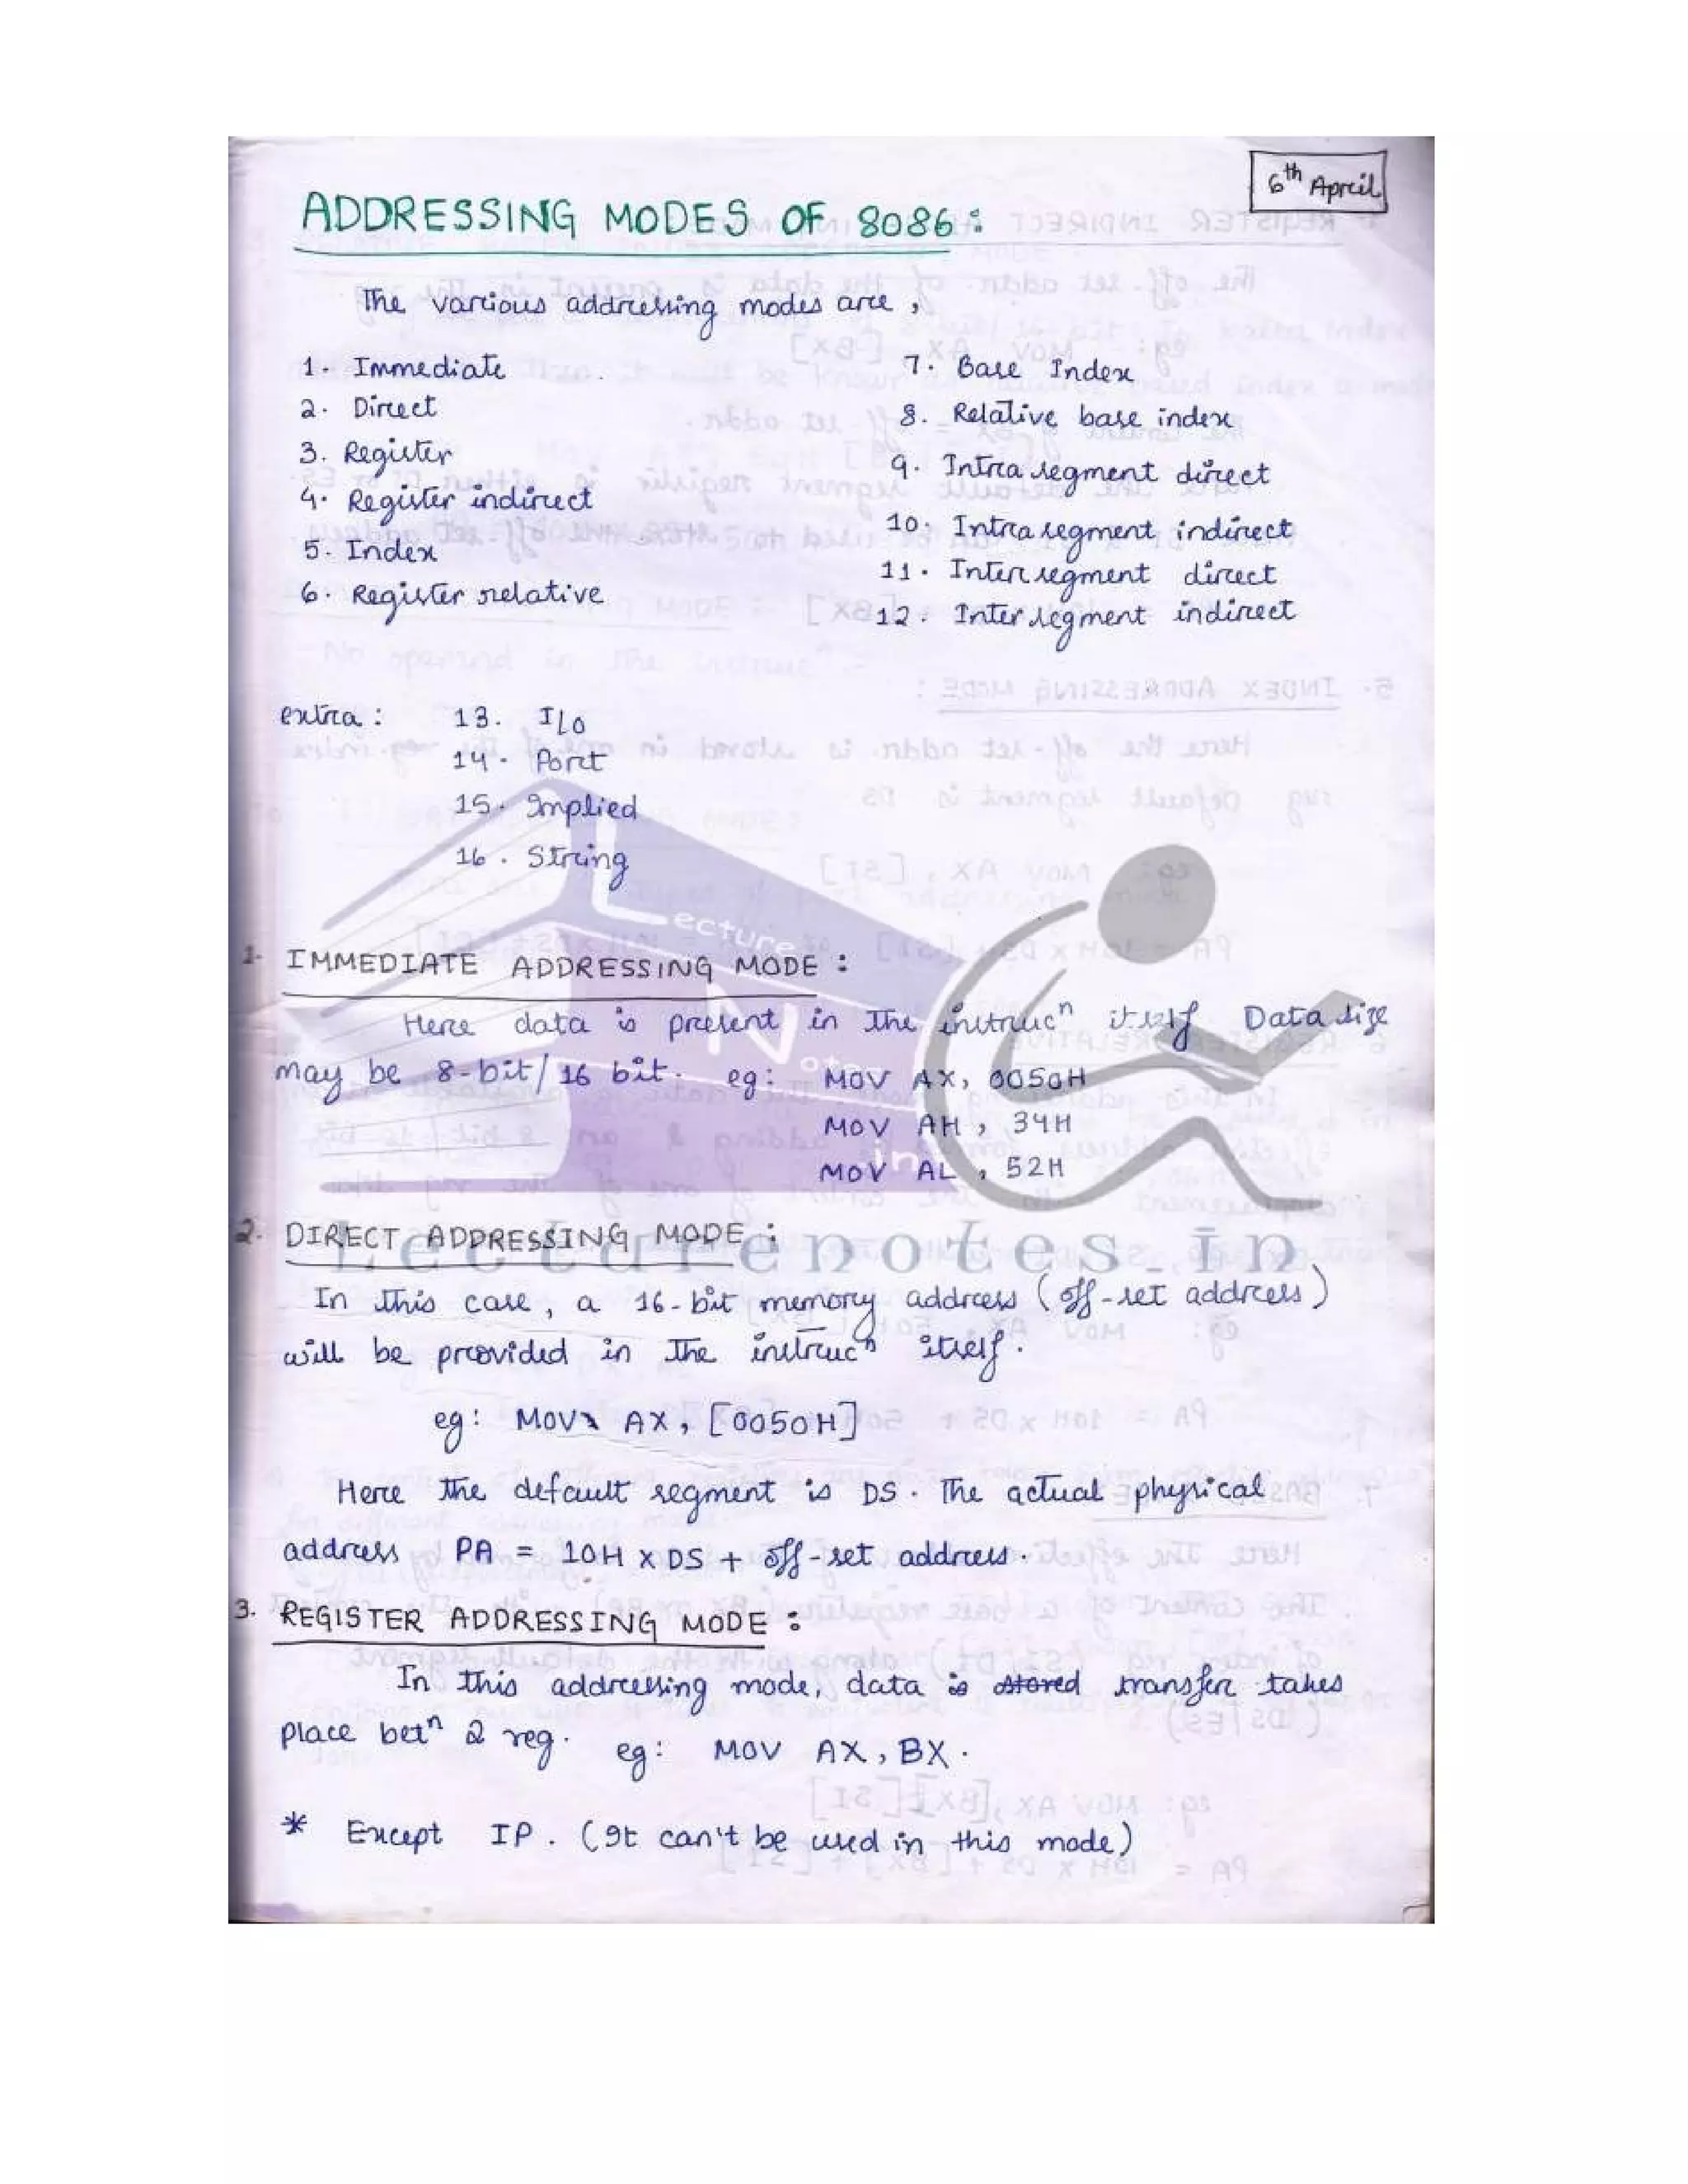 6th April
ADDRESSING MODES OF 8086:
The various addressing modes are,
1. Immediate
2. Direct
3. Register
4. Register indirect
5. Index
6. Register relative
7. Base Index
8. Relative base index
9. Intra segment direct
10. Intra segment indirect
11. Inter segment direct
12. Inter segment indirect
extra: 13. I/O
14. Port
15. Implied
16. String
1. IMMEDIATE ADDRESSING MODE:
Here data is present in the instrucn itself Data size
may be 8-bit/16 bit. eg: MOV AX, 0050H
MOV AH, 34H
MOV AL, 52H
Lecture Notes.in
2. DIRECT ADDRESSING MODE:
Lecturenotes.in
In this case, a 16-bit memory address (off-set address)
will be provided in the instrucn itself.
eg: MOV AX, [0050H]
Here the default segment is DS. The actual physical
address PA = 10H x DS + off-set address.
3. REGISTER ADDRESSING MODE:
In this addressing mode, data is stored transfer takes
place betn 2 reg. eg: MOV AX, BX.
* Except IP. (It can't be used in this mode)